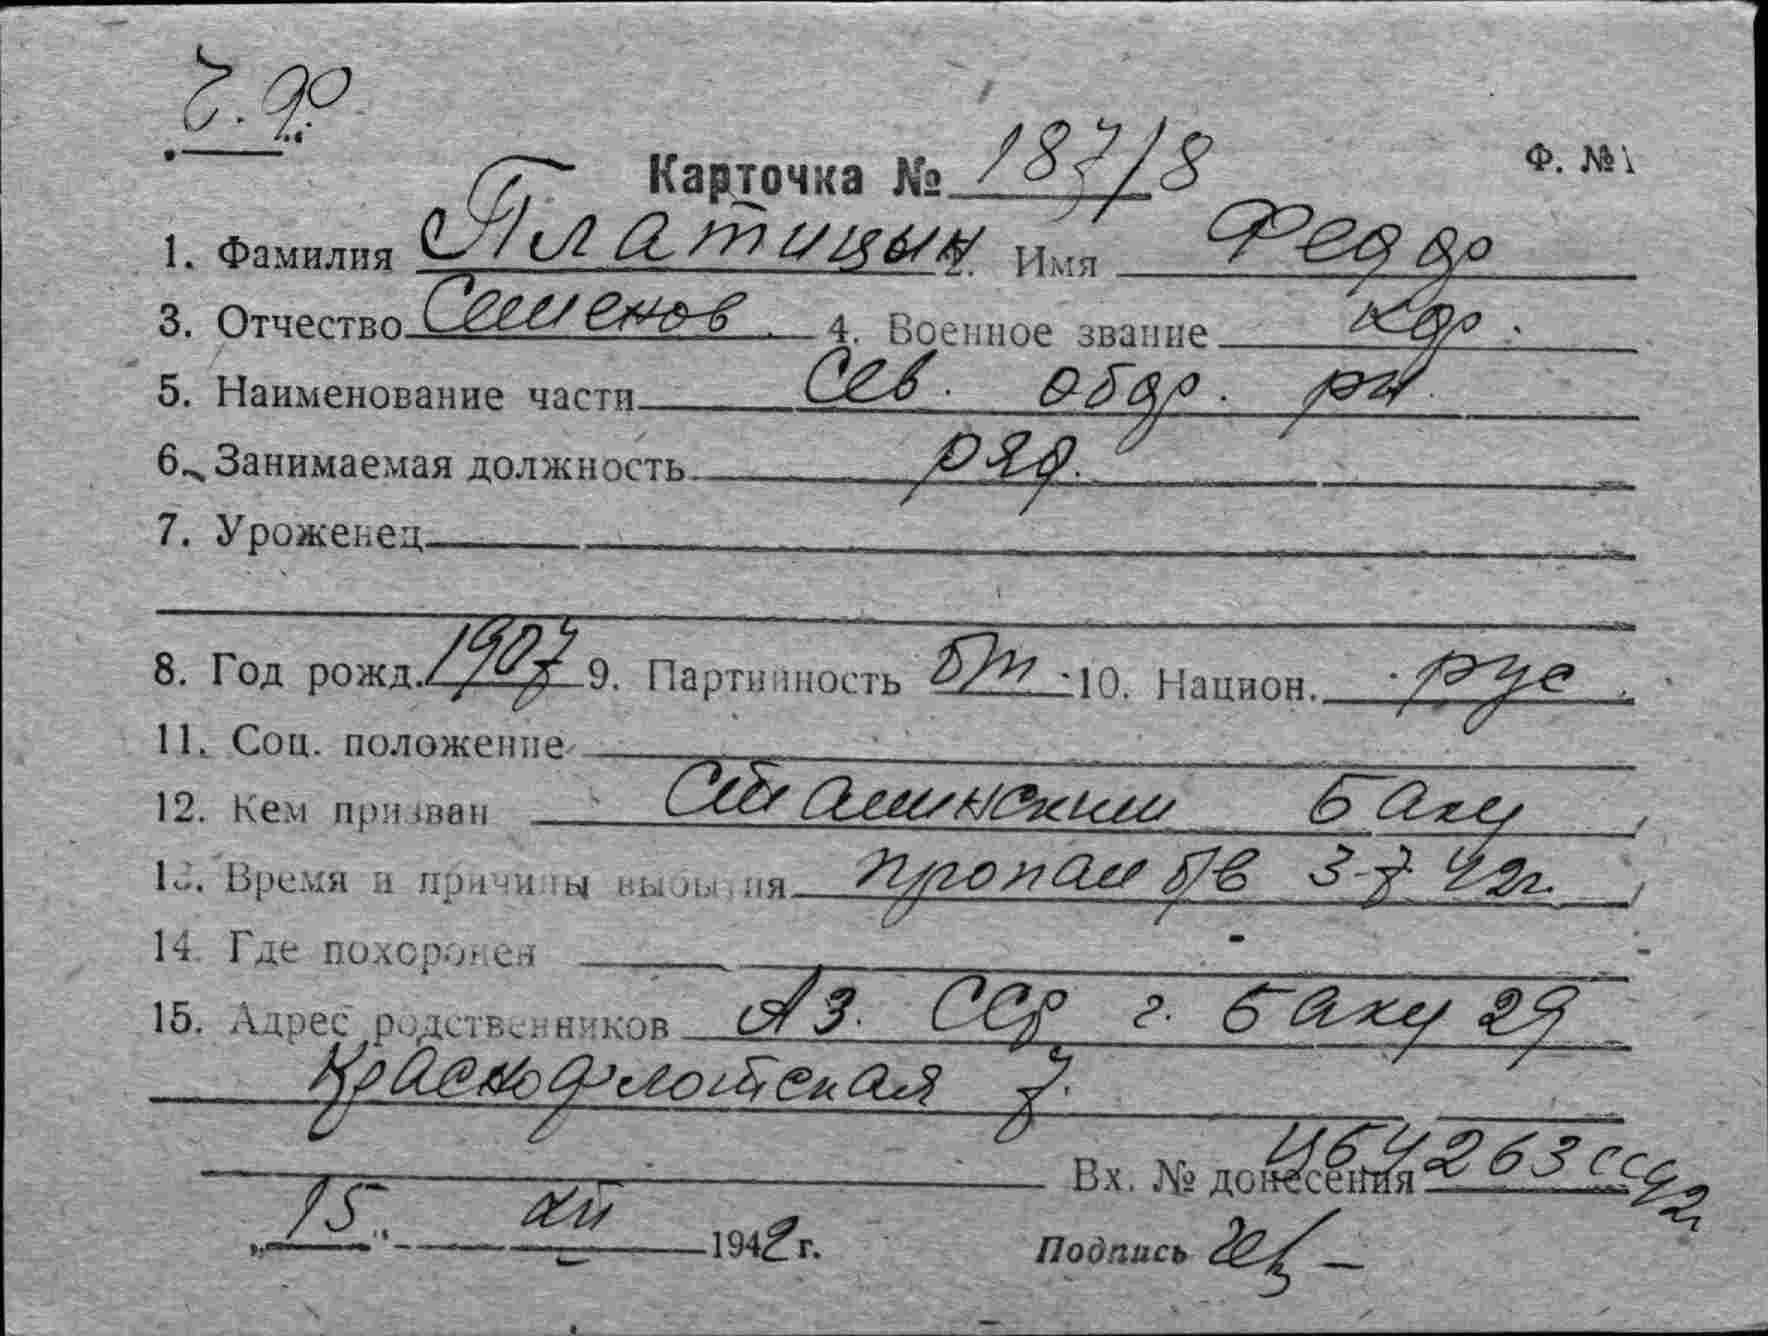 Ч. Ф
Карточка № 187/8 Ф. № 1
1. Фамилия Платицын 2. Имя Федор
3. Отчество Семенов 4. Военное звание кр.
5. Наименование части Сев. обор. рн
6. Занимаемая должность ряд.
7. Уроженец
8. Год рожд. 1907 9. Партийность б/п 10. Национ. рус
11. Соц. положение
12. Кем призван Сталинским Баку
13. Время и причины выбытия пропал б/в 3-7 42г.
14. Где похоронен
15. Адрес родственников Аз. ССР г. Баку 29
Краснофлотская 7.
Вх. № донесения 4263сс 42г
„15“ XII 1942 г. Подпись